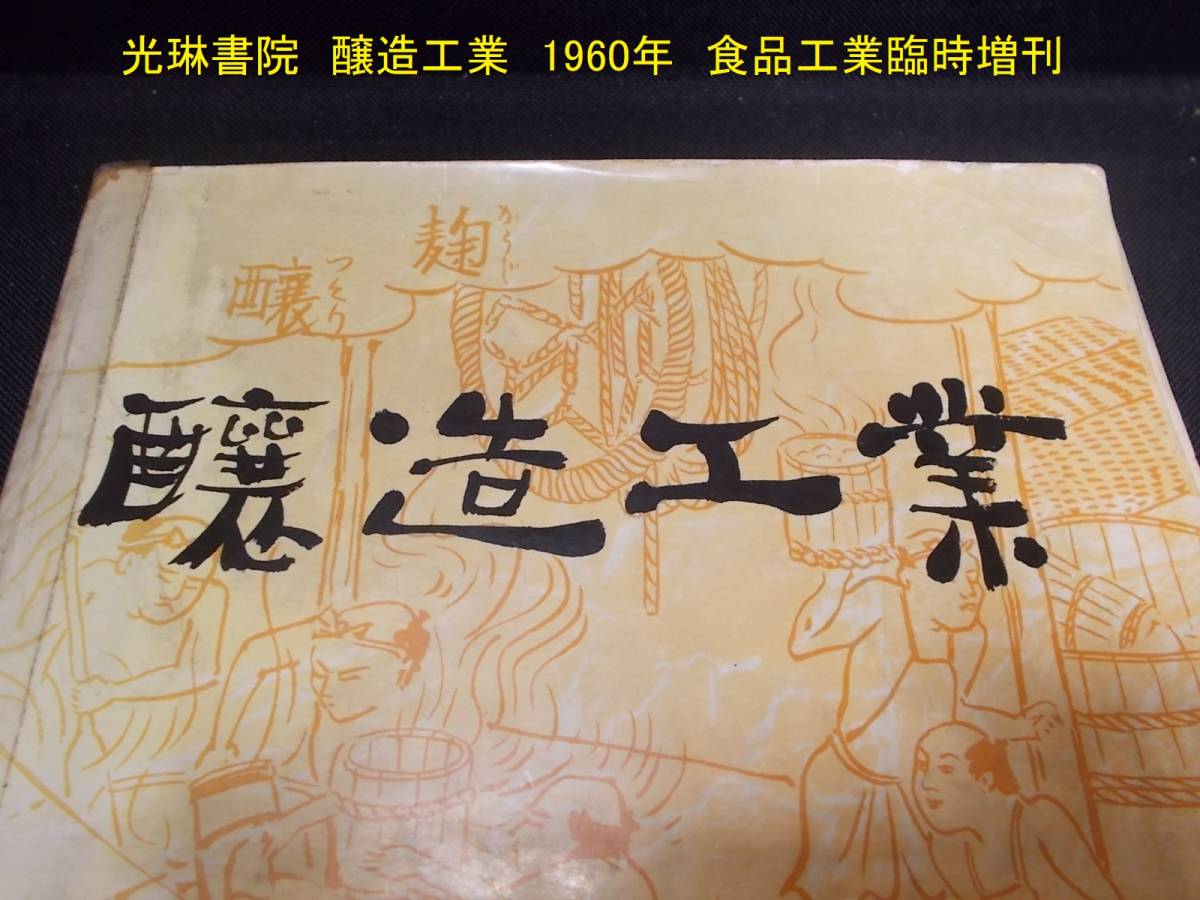 光琳書院　醸造工業　1960年　食品工業臨時増刊
麹
かうじ
醸
つくり
醸造工業